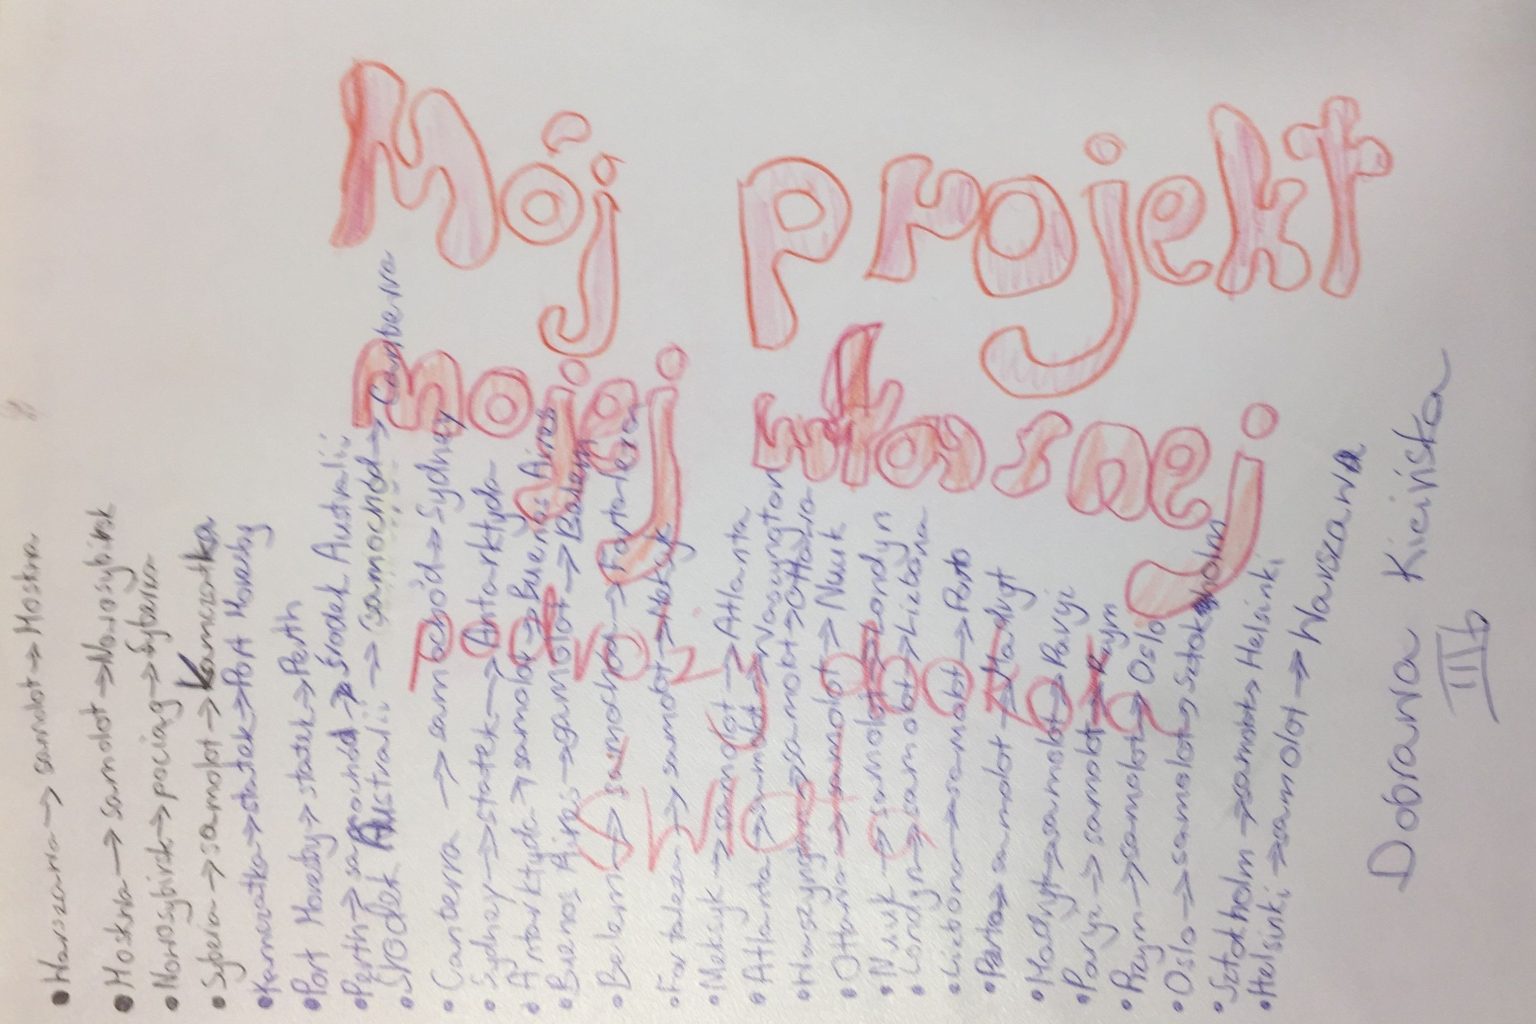 Mój projekt
mojej własnej
podróży dookoła
świata
• Warszawa → samolot → Moskwa
• Moskwa → samolot → Nowosybirsk
• Nowosybirsk → pociąg → Syberia
• Syberia → samolot → Kamczatka
• Kamczatka → statek → Port Moresby
• Port Moresby → statek → Perth
• Perth → samochód → Środek Australii
• Środek Australii → samochód → Canberra
• Canberra → samochód → Sydney
• Sydney → statek → Antarktyda
• Antarktyda → samolot → Buenos Aires
• Buenos Aires → samolot → Belem
• Belem → samochód → Fortaleza
• Fortaleza → samolot → Meksyk
• Meksyk → samolot → Atlanta
• Atlanta → samolot → Waszyngton
• Waszyngton → samolot → Ottawa
• Ottawa → samolot → Nuuk
• Nuuk → samolot → Londyn
• Londyn → samolot → Lizbona
• Lizbona → samolot → Porto
• Porto → samolot → Madryt
• Madryt → samolot → Paryż
• Paryż → samolot → Rzym
• Rzym → samolot → Oslo
• Oslo → samolot → Sztokholm
• Sztokholm → samolot → Helsinki
• Helsinki → samolot → Warszawa
Dobrawa Kicińska
IIIb